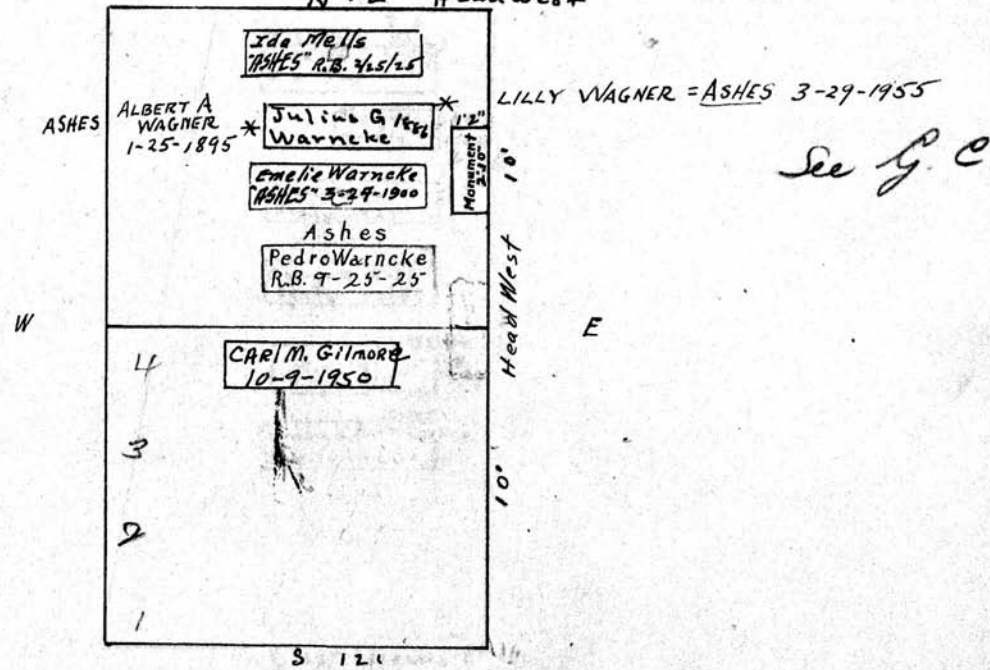 Head West
Ida Mells
"ASHES" R.B. 2/25/25
ASHES
ALBERT A
WAGNER
1-25-1895
*
Julius G 1886
Warncke
*
LILLY WAGNER = ASHES 3-29-1955
See G. C
1'2"
Monument
2'-10"
10'
Emelie Warncke
"ASHES" 3-29-1900
Ashes
Pedro Warncke
R.B. 9-25-25
Head West
W
E
4
CARl M. GilmoRE
10-9-1950
3
10'
2
1
S 12'